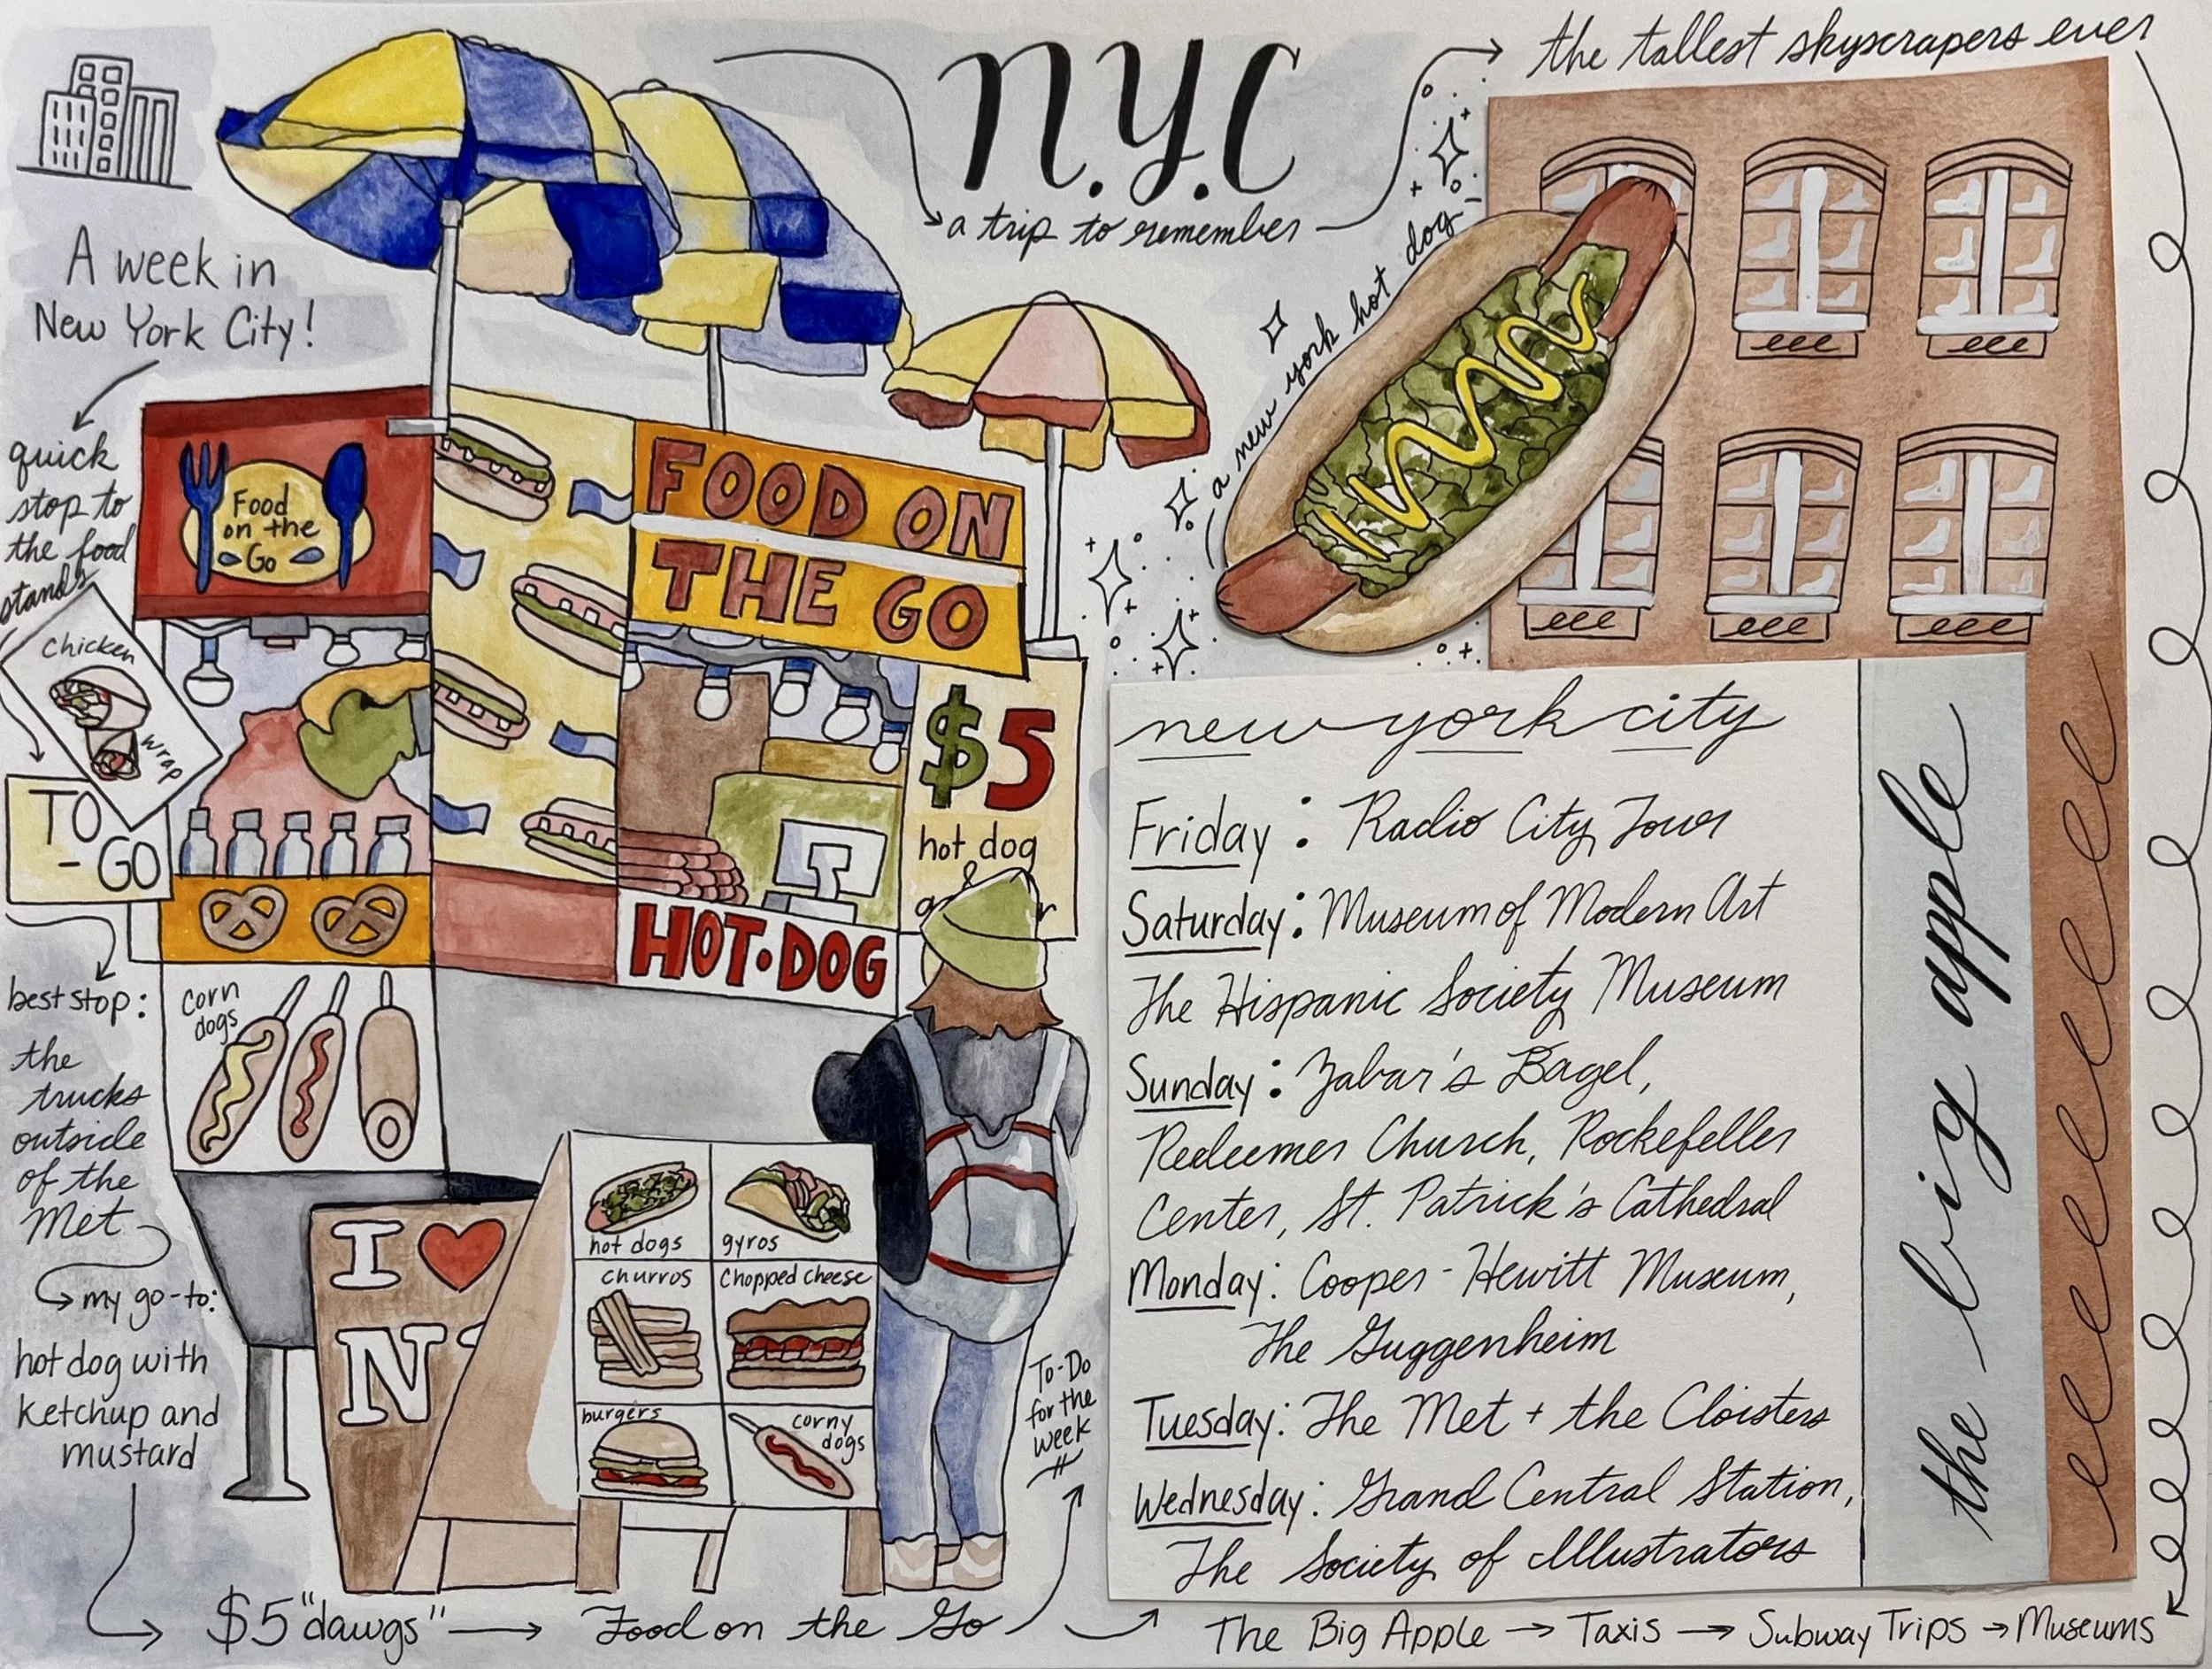 n.y.c
a trip to remember
the tallest skyscrapers ever
A week in
New York City!
quick
stop to
the food
stands
Chicken
wrap
TO
- GO
best stop:
the
trucks
outside
of the
Met
my go-to:
hot dog with
ketchup and
mustard
$5 "dawgs"
Food on the Go
Food
on the
Go
FOOD ON
THE GO
$5
hot dog
&
HOT·DOG
corn
dogs
I
N
hot dogs
gyros
churros
Chopped cheese
burgers
corny
dogs
To-Do
for the
week
a new york hot dog
new york city
Friday: Radio City Tour
Saturday: Museum of Modern Art
The Hispanic Society Museum
Sunday: Zabar's Bagel,
Redeemer Church, Rockefeller
Center, St. Patrick's Cathedral
Monday: Cooper-Hewitt Museum,
The Guggenheim
Tuesday: The Met + the Cloisters
Wednesday: Grand Central Station,
The Society of Illustrators
the big apple
The Big Apple → Taxis → Subway Trips → Museums